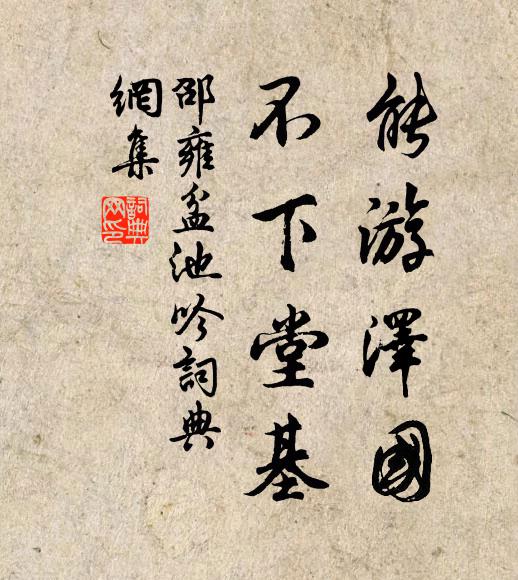 能游澤國
不下堂基
邵雍盆池吟詞典
網集
詞典
网印